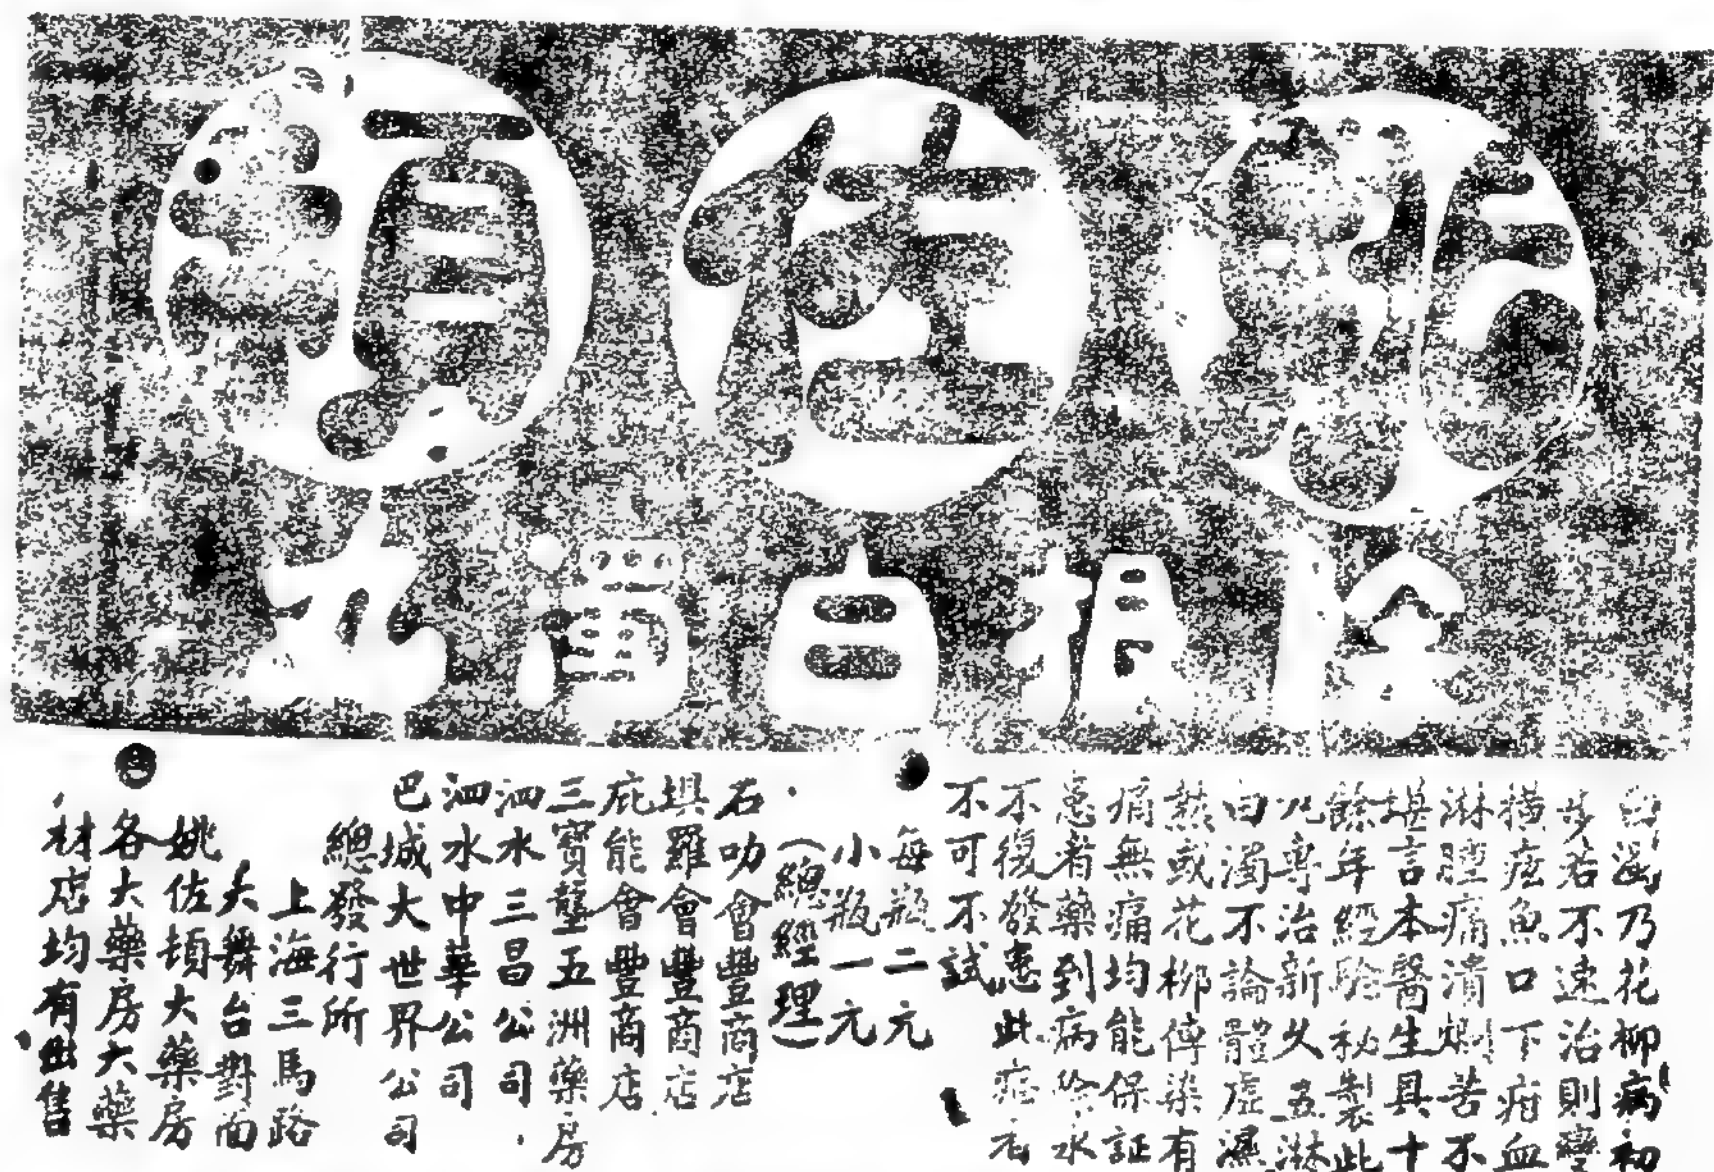 姚佐頓
除根白濁丸
白濁乃花柳病初
步若不速治則變
橫痃魚口下疳血
淋腫痛潰爛苦不
堪言本醫生具十
餘年經驗秘製此
丸專治新久五淋
白濁不論體虛濕
熱或花柳傳染有
痛無痛均能保証
患者藥到病除永
不復發患此症者
不可不試
每瓶二元
小瓶一元
(總經理)
石叻會豐商店
埧羅會豐商店
庇能會豐商店
三寶壟五洲藥房
泗水三昌公司
泗水中華公司
巴城大世界公司
總發行所
上海三馬路
大舞台對面
姚佐頓大藥房
各大藥房大藥
材店均有出售